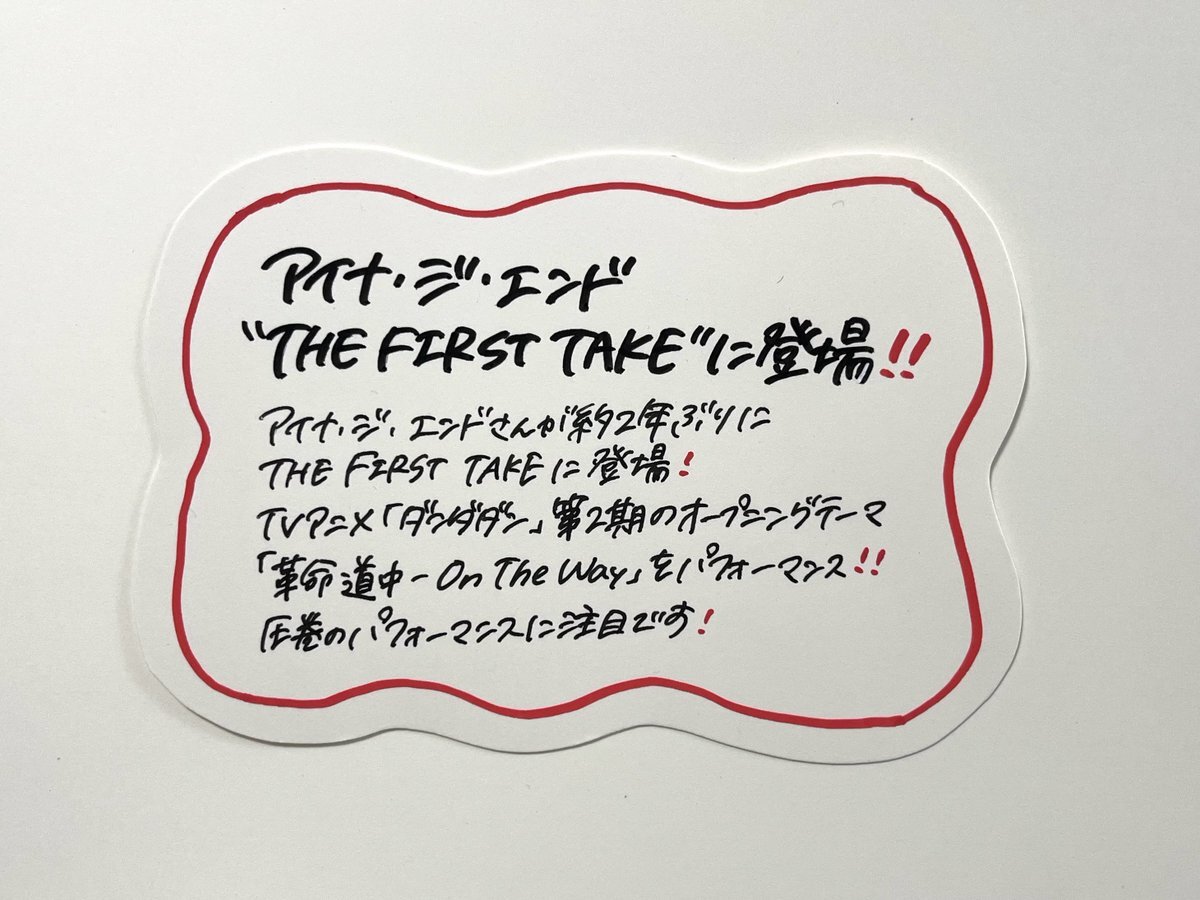 アイナ・ジ・エンド
"THE FIRST TAKE"に登場!!
アイナ・ジ・エンドさんが約2年ぶりに
THE FIRST TAKEに登場!
TVアニメ「ダンダダン」第2期のオープニングテーマ
「革命道中 - On The Way」をパフォーマンス!!
圧巻のパフォーマンスに注目です!